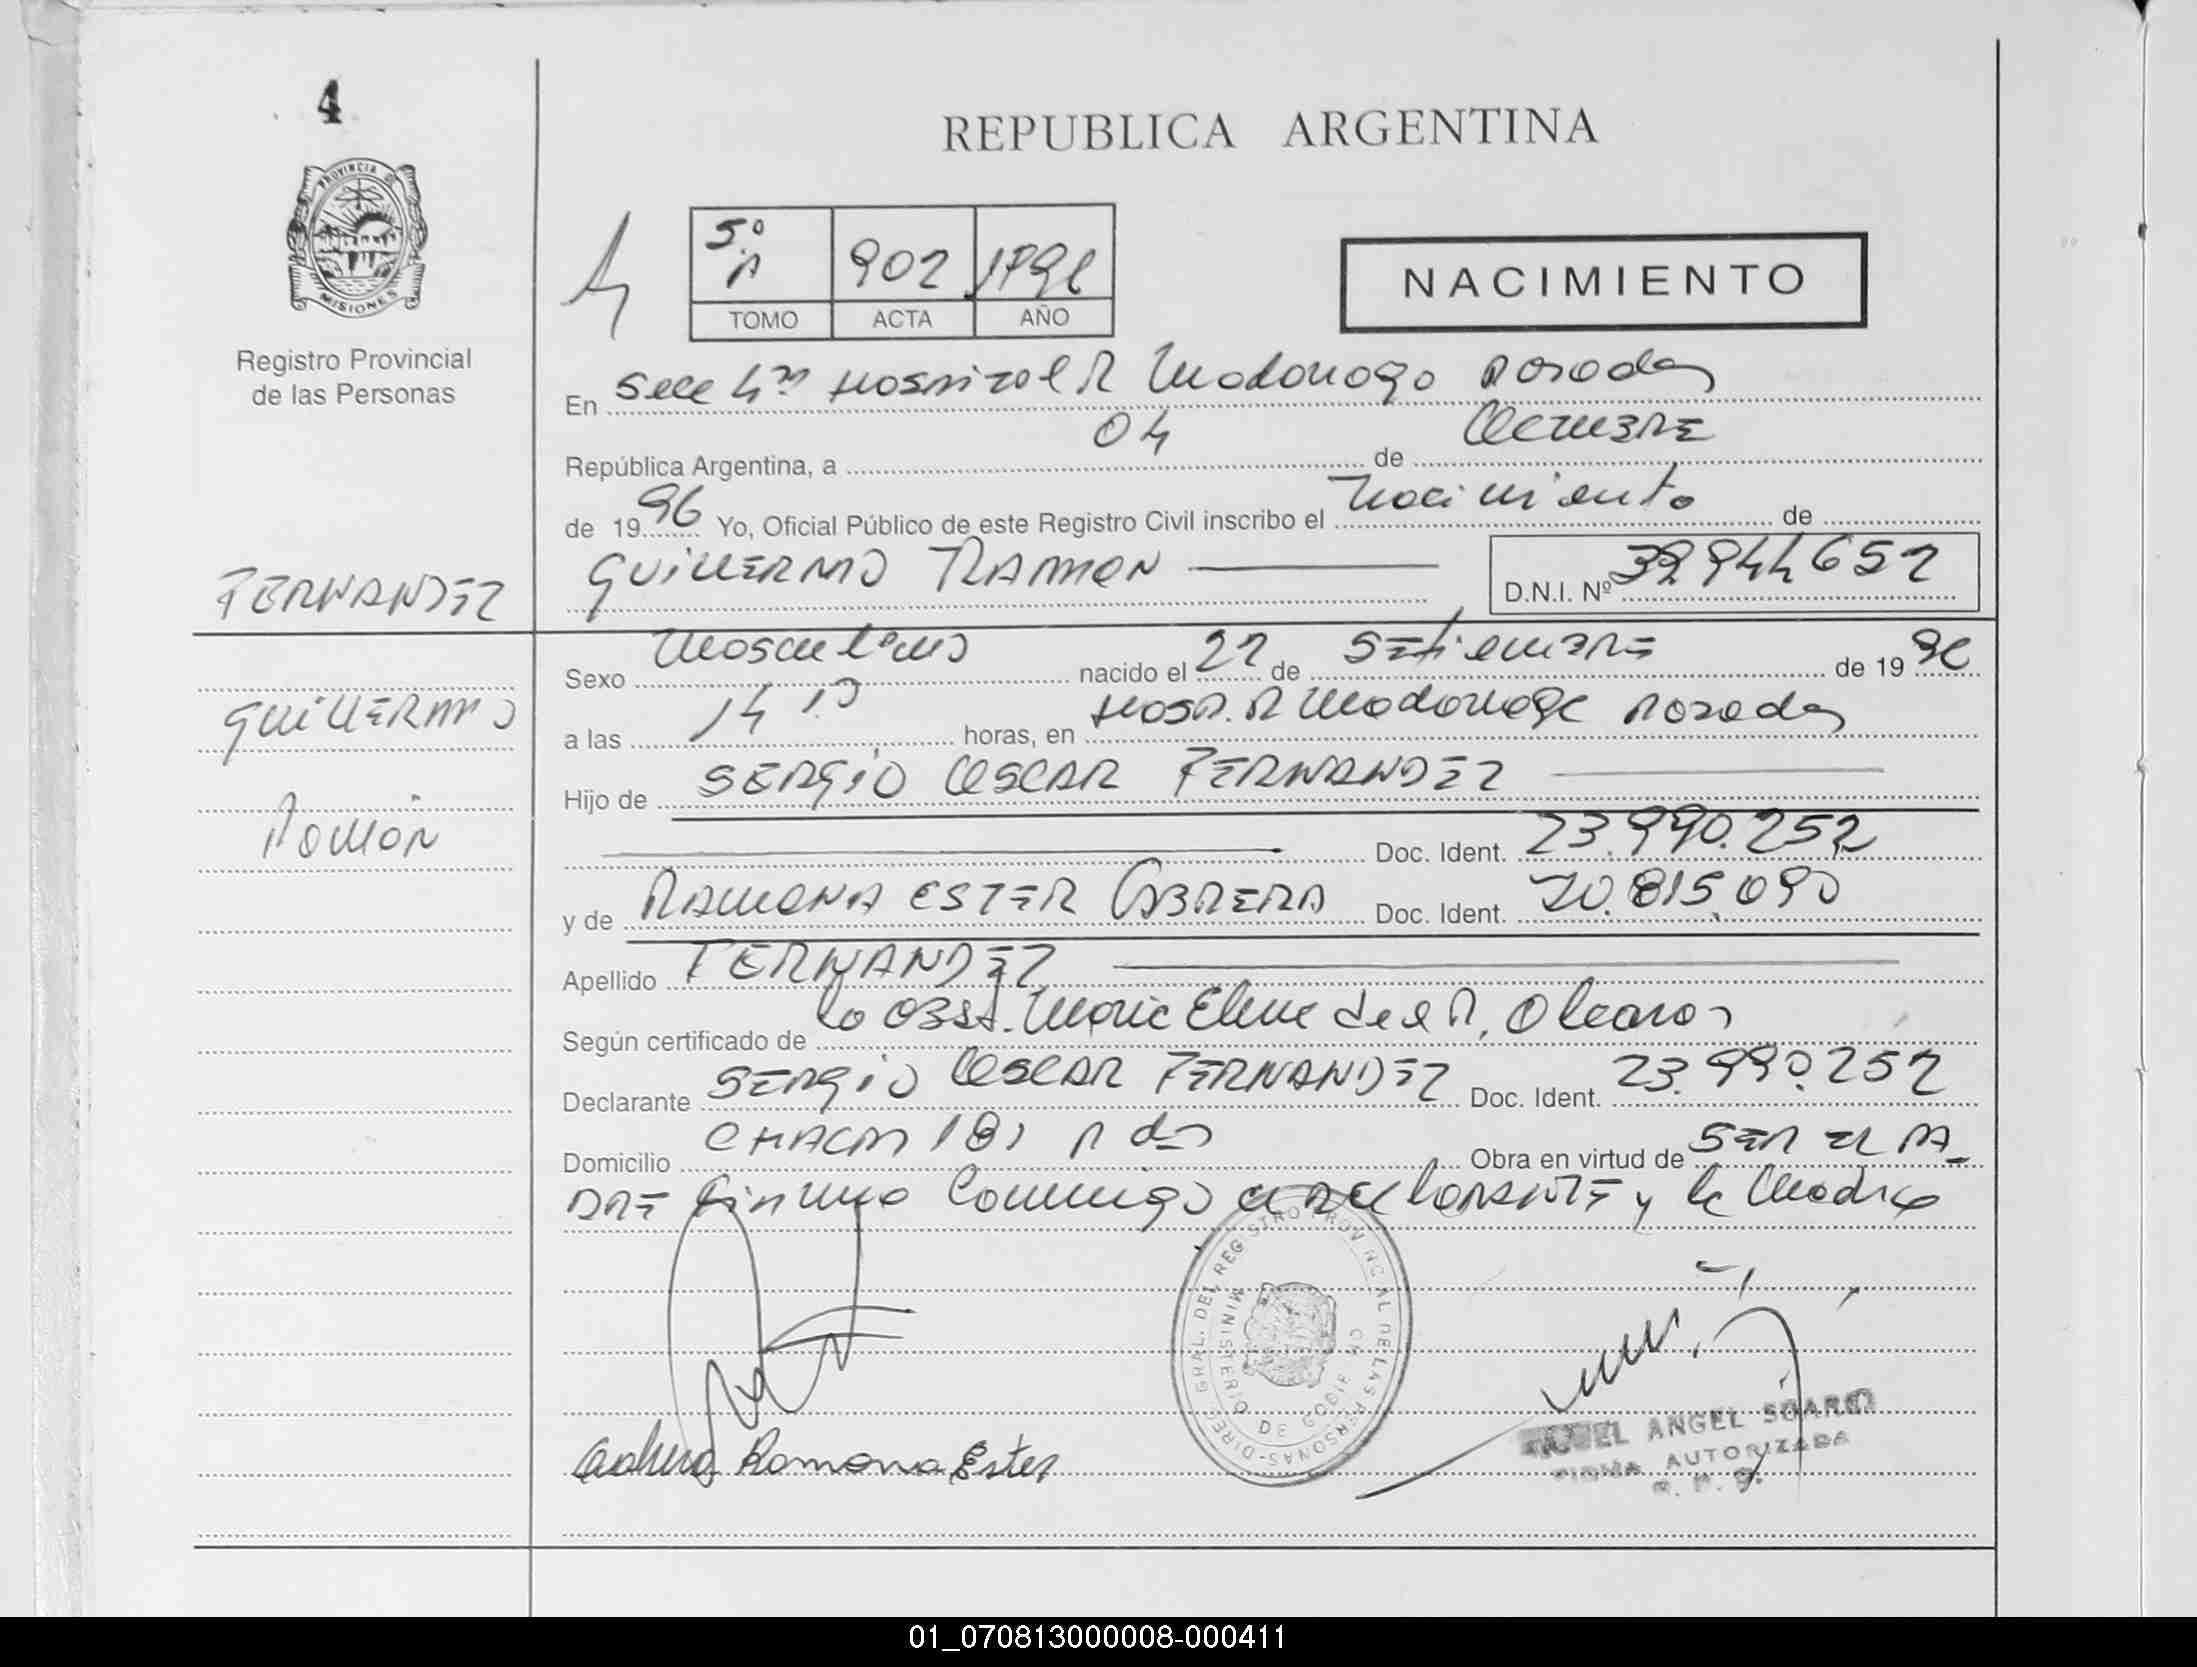 4
REPUBLICA ARGENTINA
PROVINCIA DE
MISIONES
Registro Provincial
de las Personas
4
5º A 902 1996
TOMO ACTA AÑO
NACIMIENTO
En Secc 4ta Hospital R Madariaga Posadas
República Argentina, a 04 de Octubre
de 1996 Yo, Oficial Público de este Registro Civil inscribo el Nacimiento de
FERNANDEZ
GUILLERMO RAMON
D.N.I. Nº 39.944.652
Sexo Masculino nacido el 22 de Setiembre de 1996
GUILLERMO
a las 14 10 horas, en Hosp. R Madariaga Posadas
Hijo de SERGIO OSCAR FERNANDEZ
Ramón
Doc. Ident. 23.990.252
y de RAMONA ESTER CABRERA Doc. Ident. 20.815.090
Apellido FERNANDEZ
Según certificado de la Obst. Maria Elena del R.
Declarante SERGIO OSCAR FERNANDEZ Doc. Ident. 23.990.252
Domicilio CHACRA 181 Pdas Obra en virtud de SER EL PA-
DRE firma conmigo el DECLARANTE y la Madre
DIREC. GRAL. DEL REGISTRO PROVINCIAL DE LAS PERSONAS
MINISTERIO DE GOBIERNO
Cabrera Ramona Ester
ANGEL
FIRMA AUTORIZADA
01_070813000008-000411